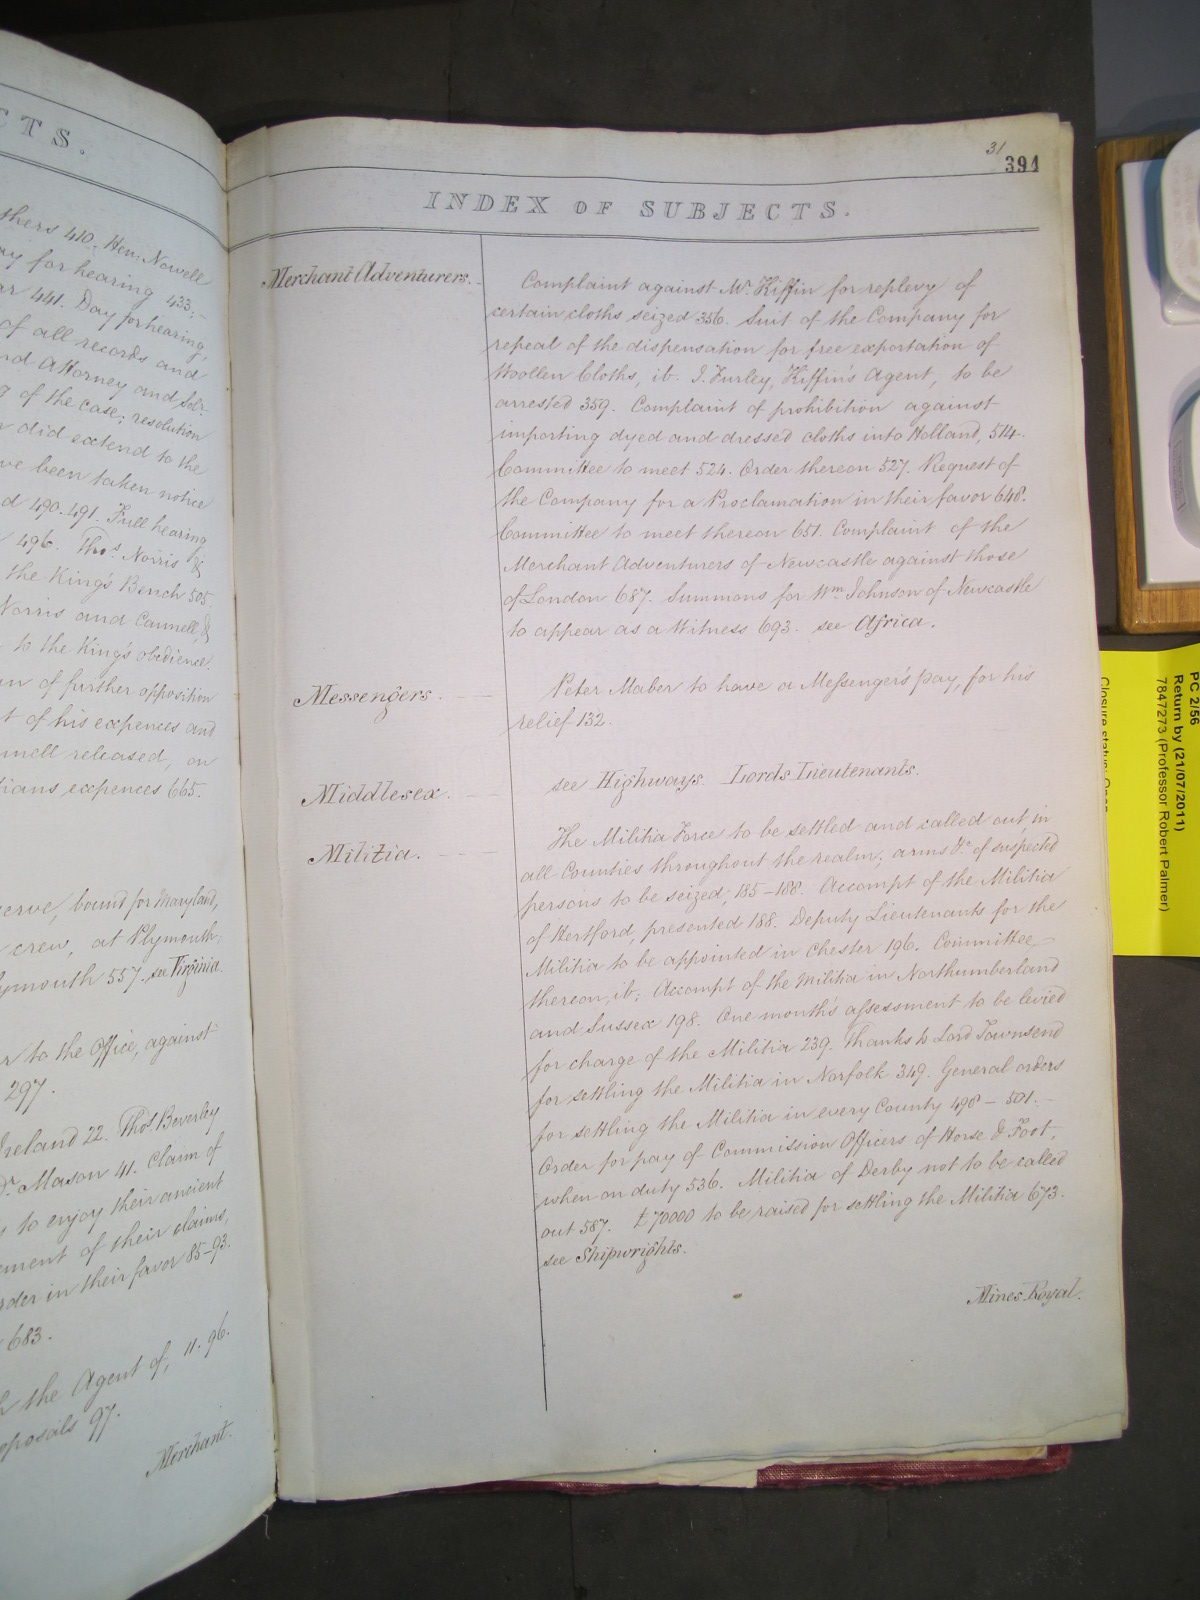 CTS.
thers 410. Hen: Nowell
ay for hearing 433.
ar 441. Day for hearing,
of all records and
nd Attorney and Soli-
g of the case; resolution
n did extend to the
ve been taken notice
d 490-491. Full hearing
496. Thos. Norris &
the King's Bench 505.
Norris and Cannell, &
to the King's obedience.
an of further opposition
t of his expences and
nnell released, on
tians expences 665.
erve, bound for Maryland,
crew, at Plymouth;
lymouth 557. see Virginia.
r to the Office, against
297.
Ireland 22. Thos. Beverley
Dr. Mason 41. Claim of
to enjoy their ancient
ement of their claims,
rder in their favor 85-93.
683.
h the Agent of, 11. 96.
oposals 97.
Merchant.
31
394
INDEX OF SUBJECTS.
Merchant Adventurers.
Complaint against Mr. Kiffin for replevy of
certain cloths seized 356. Suit of the Company for
repeal of the dispensation for free exportation of
Woollen Cloths, ib. J. Furley, Kiffin's Agent, to be
arrested 359. Complaint of prohibition against
importing dyed and dressed cloths into Holland, 514.
Committee to meet 524. Order thereon 527. Request of
the Company for a Proclamation in their favor 648.
Committee to meet thereon 651. Complaint of the
Merchant Adventurers of Newcastle against those
of London 687. Summons for Wm. Johnson of Newcastle
to appear as a Witness 693. see Africa.
Messengers.
Peter Maber to have a Messenger's pay, for his
relief 132.
Middlesex.
see Highways. Lords Lieutenants.
Militia.
The Militia Force to be settled and called out, in
all Counties throughout the realm; arms &c. of suspected
persons to be seized, 185-188. Accompt of the Militia
of Hertford, presented 188. Deputy Lieutenants for the
Militia to be appointed in Chester 196. Committee
thereon, ib; Accompt of the Militia in Northumberland
and Sussex 198. One month's assessment to be levied
for charge of the Militia 239. Thanks to Lord Townsend
for settling the Militia in Norfolk 349. General orders
for settling the Militia in every County 498 - 501.
Order for pay of Commission Officers of Horse & Foot,
when on duty 536. Militia of Derby not to be called
out 587. £70000 to be raised for settling the Militia 673.
see Shipwrights.
Mines Royal.
PC 2/56
Return by (21/07/2011)
7847273 (Professor Robert Palmer)
Closure status: Open